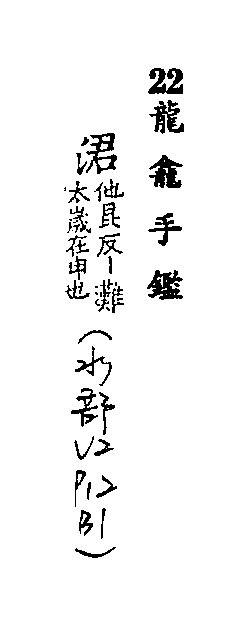 22龍龕手鑑
涒
他昆反丨灘
太歲在申也
(水部V2P12B1)